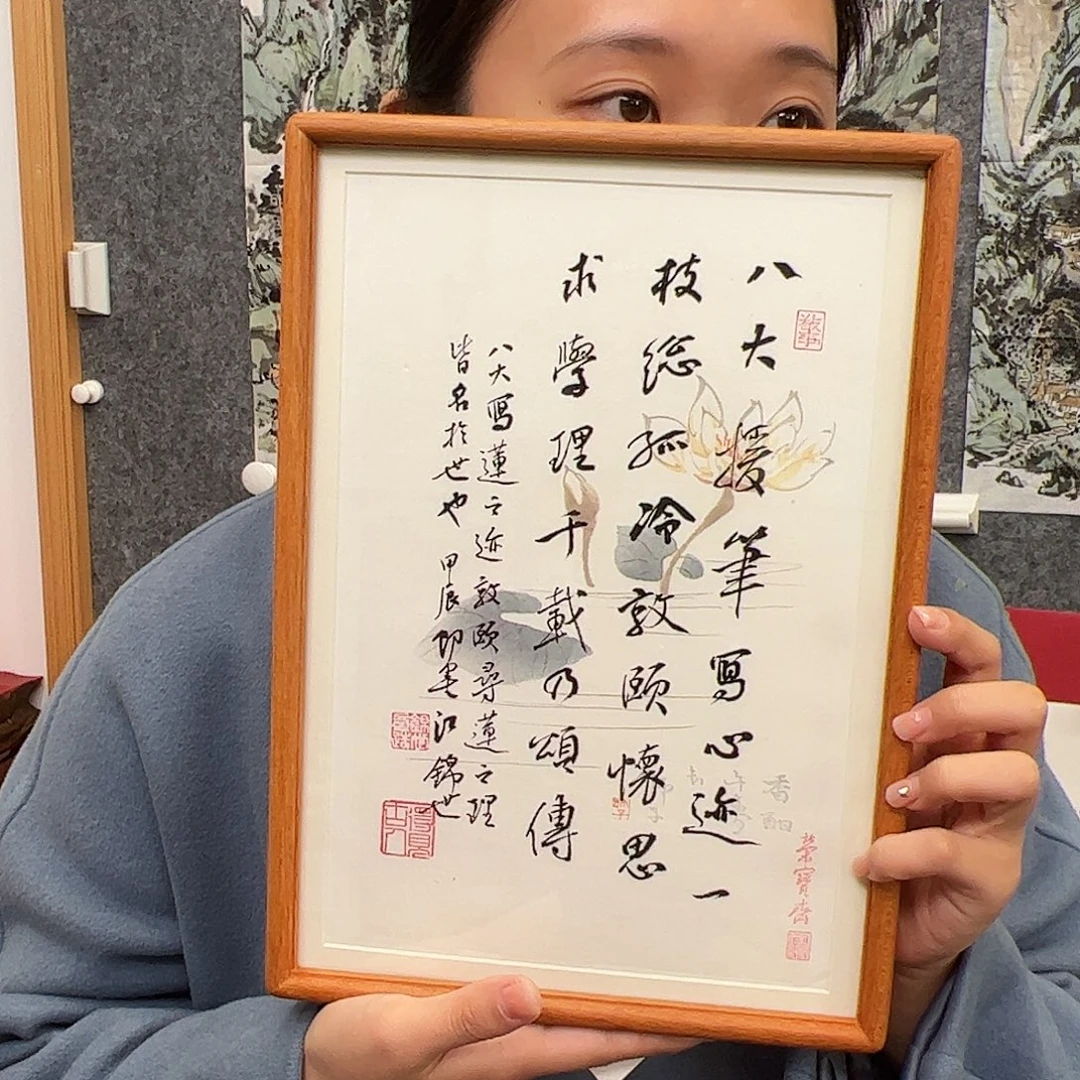 八大援筆寫心迹一
枝總孤冷敦頤懷思
求學理千載乃頌傳
八大寫蓮之迹敦頤尋蓮之理
皆名於世也 甲辰 江錦世
香酣
榮寶齋